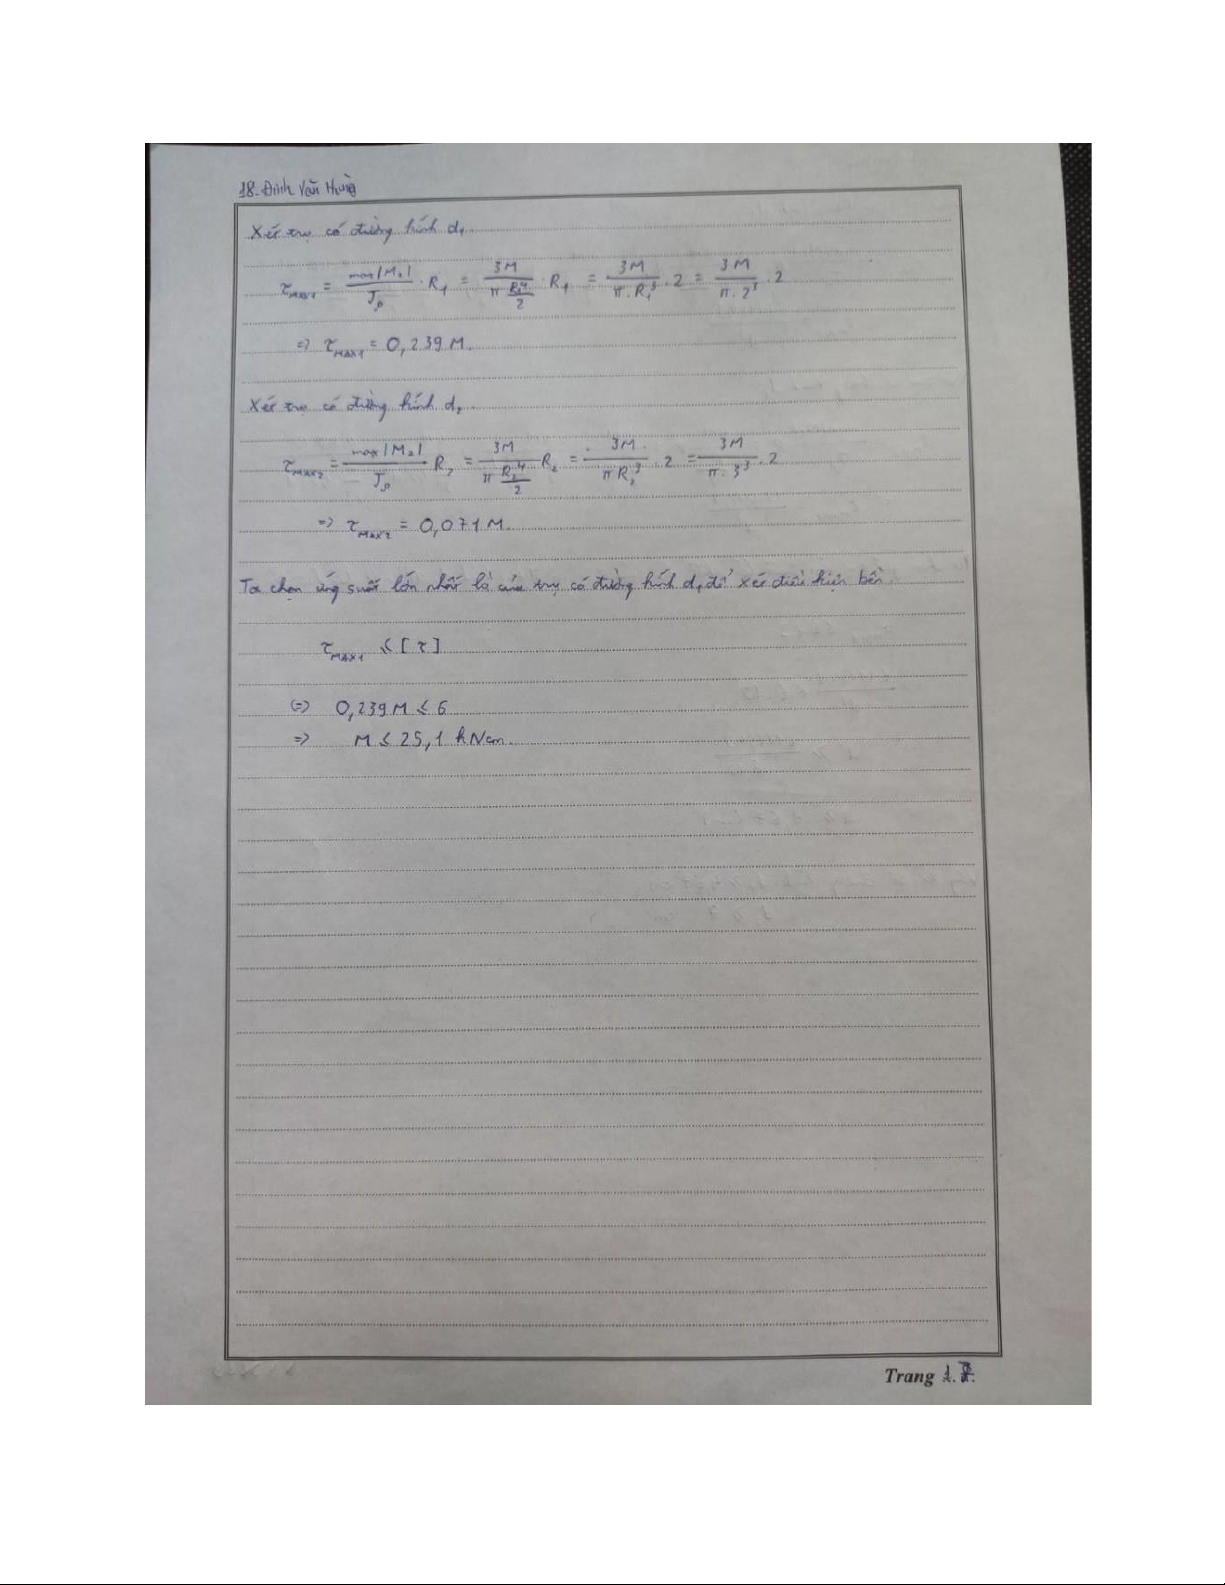 18. Đinh Văn Hưng
Xét trụ có đường kính d₁
τ_MAX1 = max|M₂|/J_ρ . R₁ = 3M/(π R₁⁴/2) . R₁ = 3M/(π . R₁³) . 2 = 3M/(π . 2³) . 2
=> τ_MAX1 = 0,239 M.
Xét trụ có đường kính d₂
τ_MAX2 = max|M₂|/J_ρ R₂ = 3M/(π R₂⁴/2) R₂ = 3M/(π R₂³) . 2 = 3M/(π . 3³) . 2
=> τ_MAX2 = 0,071 M.
Ta chọn ứng suất lớn nhất là của trụ có đường kính d₁ để xét điều kiện bền.
τ_MAX1 ≤ [τ]
(=) 0,239 M ≤ 6
=> M ≤ 25,1 kNcm.
Trang